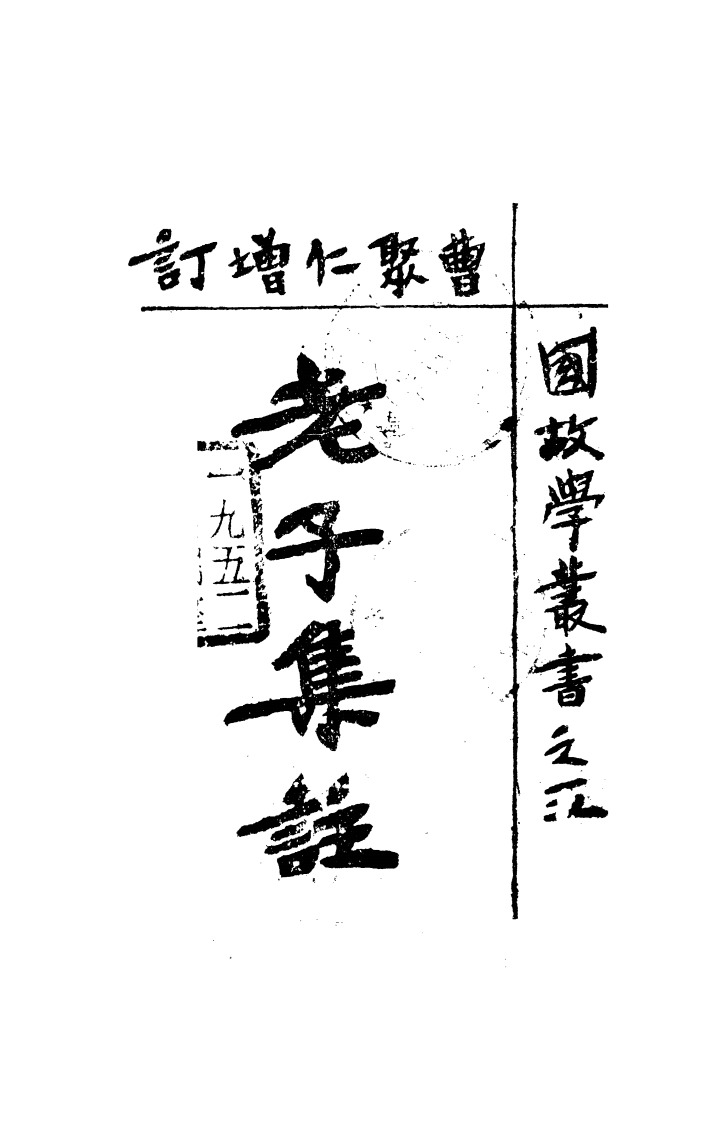 國故學叢書之
訂增仁聚曹
老子集註
一九五二